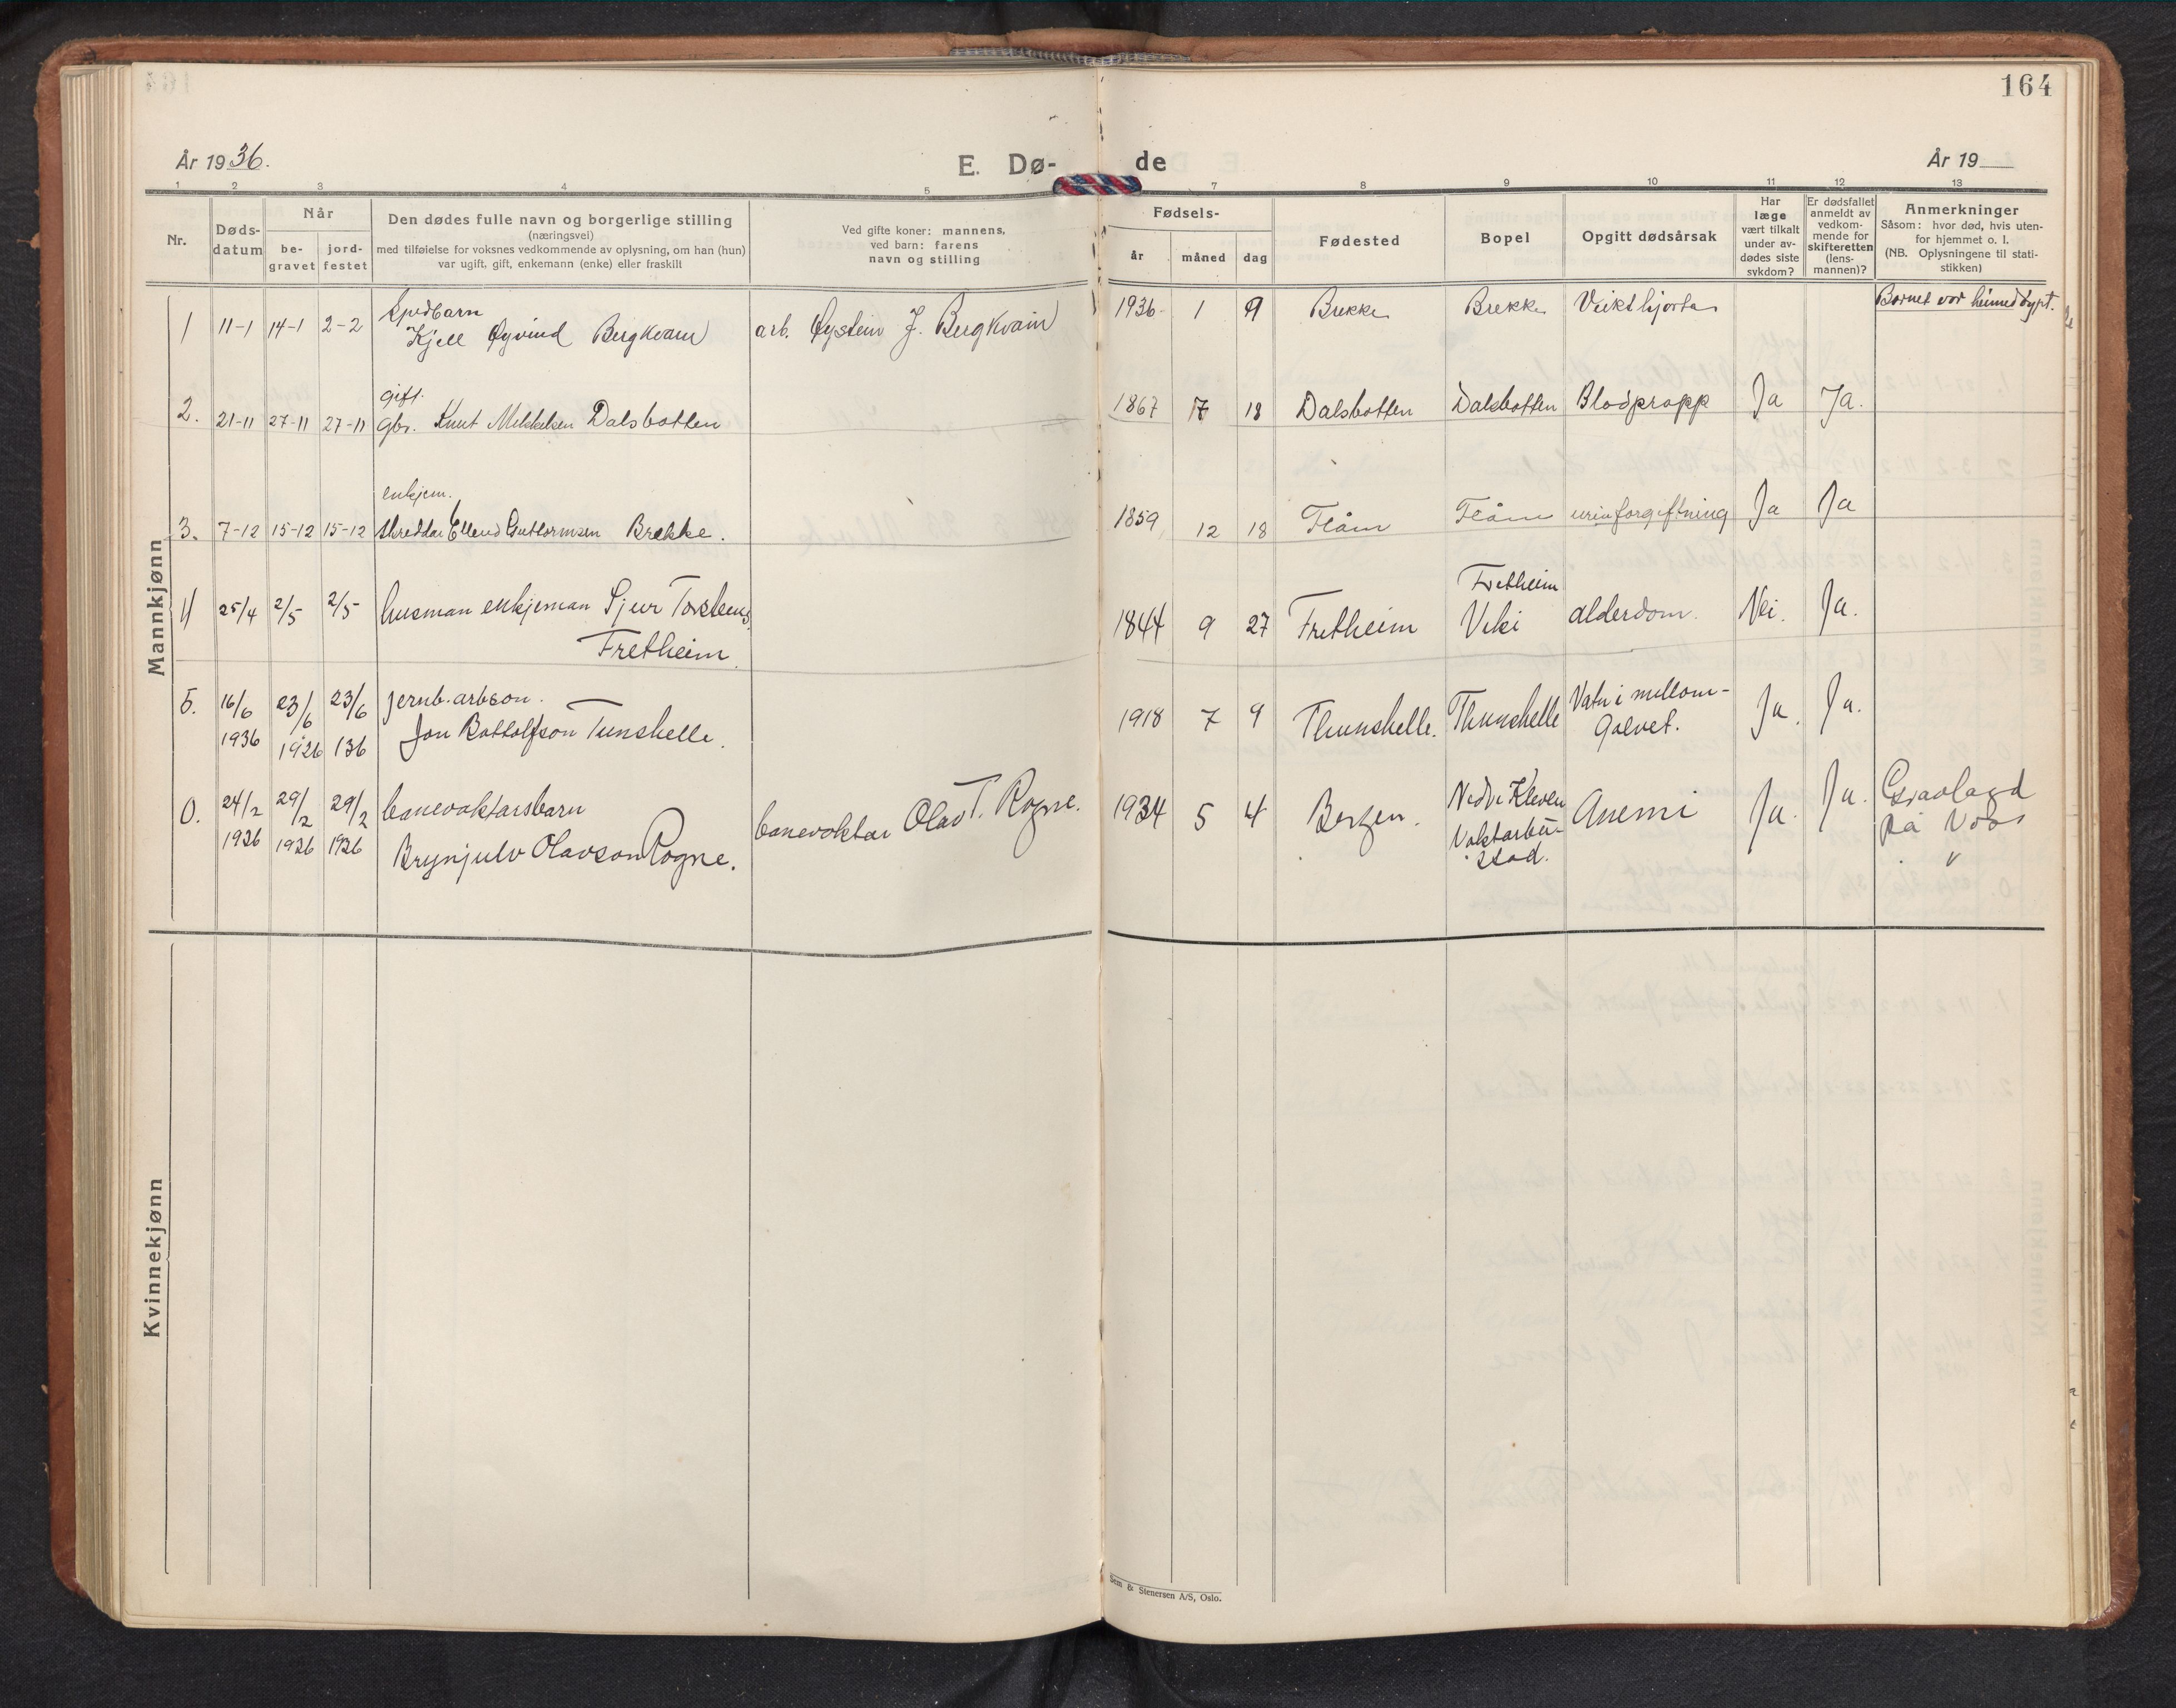 164
År 1936.
E. Dø-
de
År 19
1 2 3 4 5 7 8 9 10 11 12 13
Nr.
Døds-
datum
Når
be-
gravet
jord-
festet
Den dødes fulle navn og borgerlige stilling
(næringsvei)
med tilføielse for voksnes vedkommende av oplysning, om han (hun)
var ugift, gift, enkemann (enke) eller fraskilt
Ved gifte koner: mannens,
ved barn: farens
navn og stilling
Fødsels-
år måned dag
Fødested
Bopel
Opgitt dødsårsak
Har
læge
vært tilkalt
under av-
dødes siste
sykdom?
Er dødsfallet
anmeldt av
vedkom-
mende for
skifteretten
(lens-
mannen)?
Anmerkninger
Såsom: hvor død, hvis uten-
for hjemmet o. l.
(NB. Oplysningene til stati-
stikken)
Mannkjønn
Spedbarn
1 11-1 14-1 2-2 Kjell Øyvind Bergkvam arb. Øystein J. Bergkvam 1936 1 9 Brekke Brekke Veikt hjorta Barnet var heimedøypt.
gift.
2. 21-11 27-11 27-11 gbr. Knut Mikkelsen Dalsbotten 1867 7 18 Dalsbotten Dalsbotten Blodpropp Ja Ja.
enkjem.
3. 7-12 15-12 15-12 skreddar Ellend Guttormsen Brekke. 1859 12 18 Flåm Flåm urinforgiftning Ja Ja
4 25/4 2/5 2/5 husman enkjeman Sjur Torsteins.
Fretheim.
1844 9 27 Fretheim
Fretheim
Viki
alderdom. Nei. Ja.
5. 16/6
1936
23/6
1936
23/6
136
jernb.arb.son.
Jon Bottolfson Tunshelle.
1918 7 9 Thunshelle. Thunshelle
Vatn i mellom-
golvet.
Ja. Ja.
0. 24/2
1936
29/2
1936
29/2
1936
banevaktarsbarn
Brynjulv Olavson Rogne.
banevaktar Olav T. Rogne.
1934 5 4 Bergen.
Nedre Kleven
Vaktarbu-
stad.
Anemi Ja. Ja.
Gravlagd
på Voss
Kvinnekjønn
Sem & Stenersen A/S, Oslo.